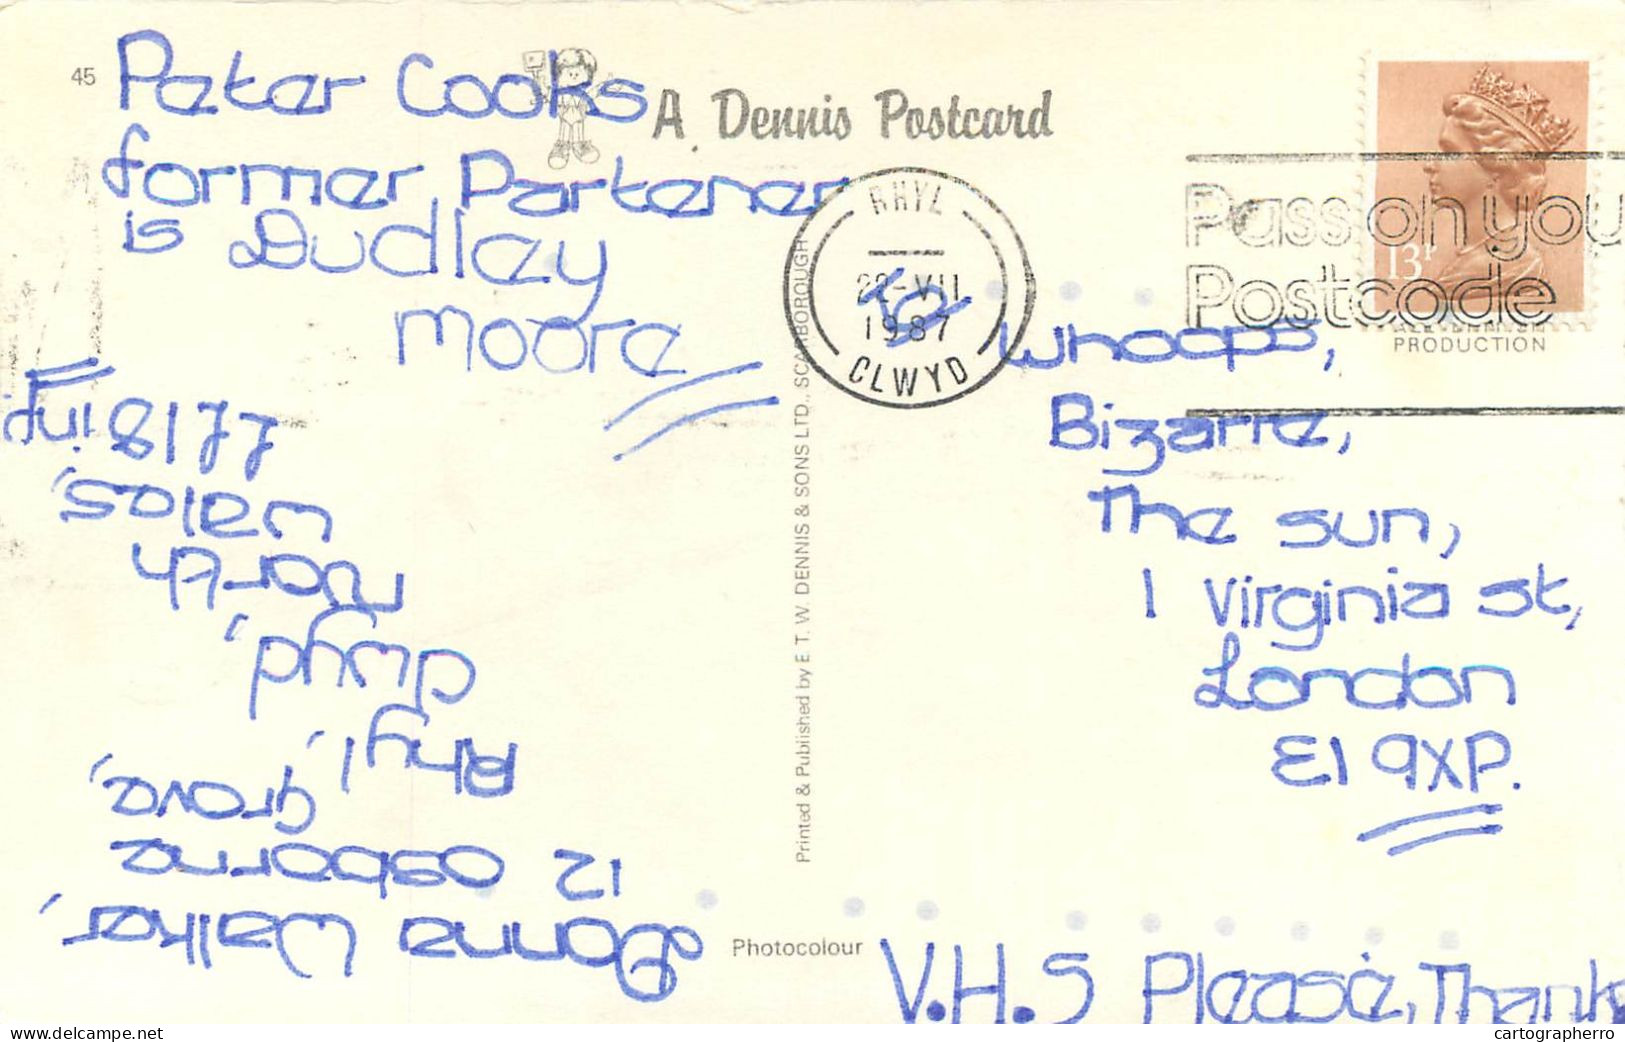 45
Peter Cooks
former Partener
is Dudley
Moore
A Dennis Postcard
RHYL
22-VII
1987
CLWYD
Pass on you
Postcode
13P
PRODUCTION
To
Whoops,
Bizarre,
The Sun,
1 Virginia St,
London
E1 9XP.
V.H.S Please, Thank
Printed & Published by E. T. W. DENNIS & SONS LTD., SCARBOROUGH
Photocolour
Donna Walker,
12 osborne
grove,
Rhyl,
clwyd,
North
Wales,
cartographerro